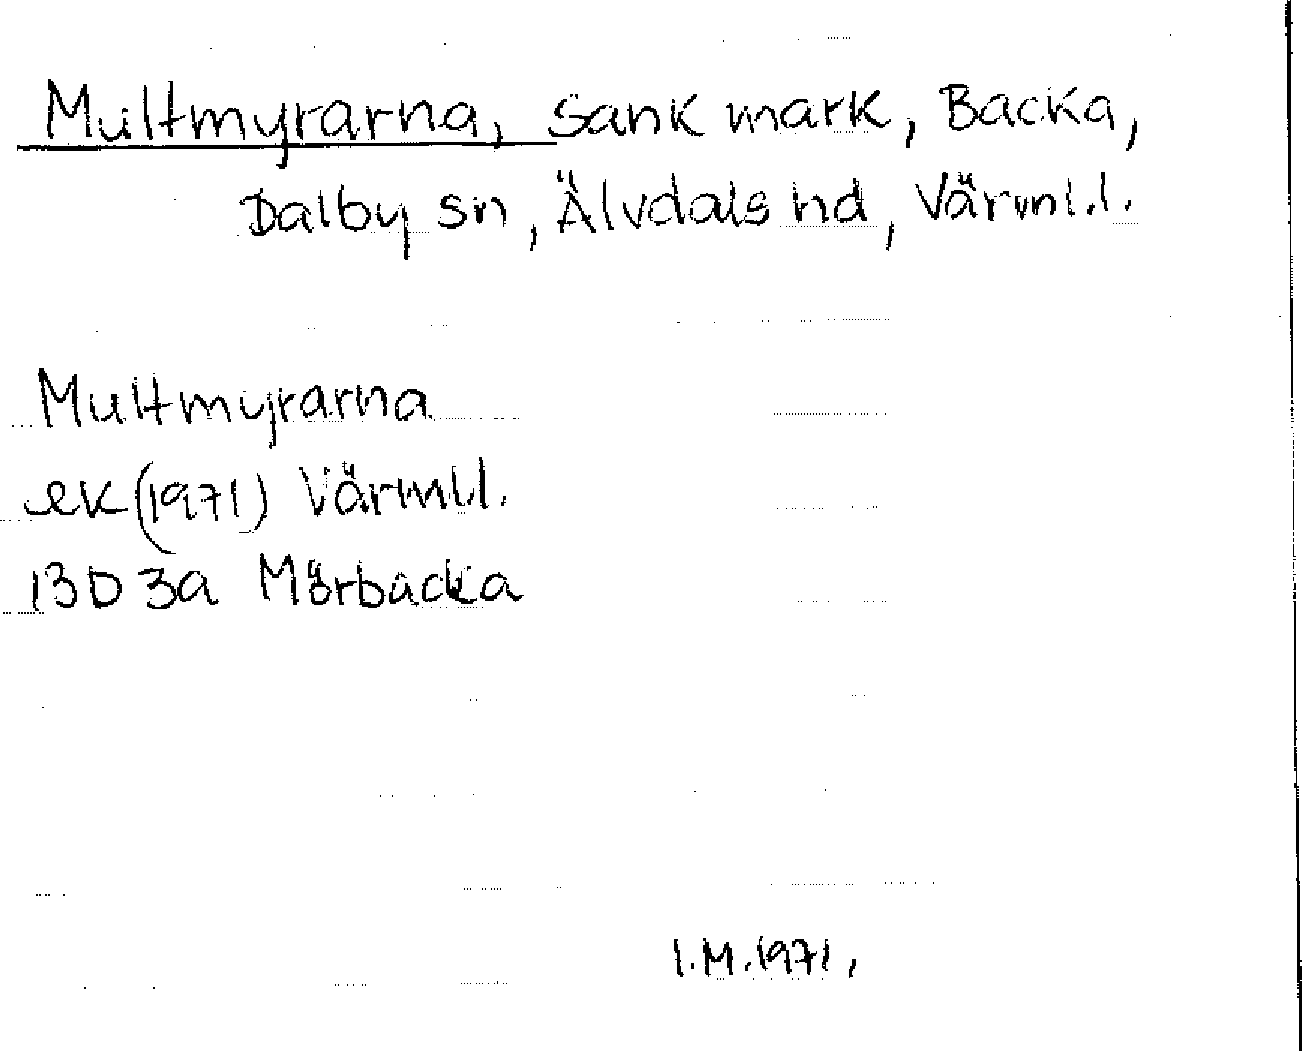 Multmyrarna, Sank mark, Backa,
Dalby sn, Älvdals hd, Värml.l.
Multmyrarna
ek (1971) Värml.l.
13D 3a Mörbacka
I.M. 1971,